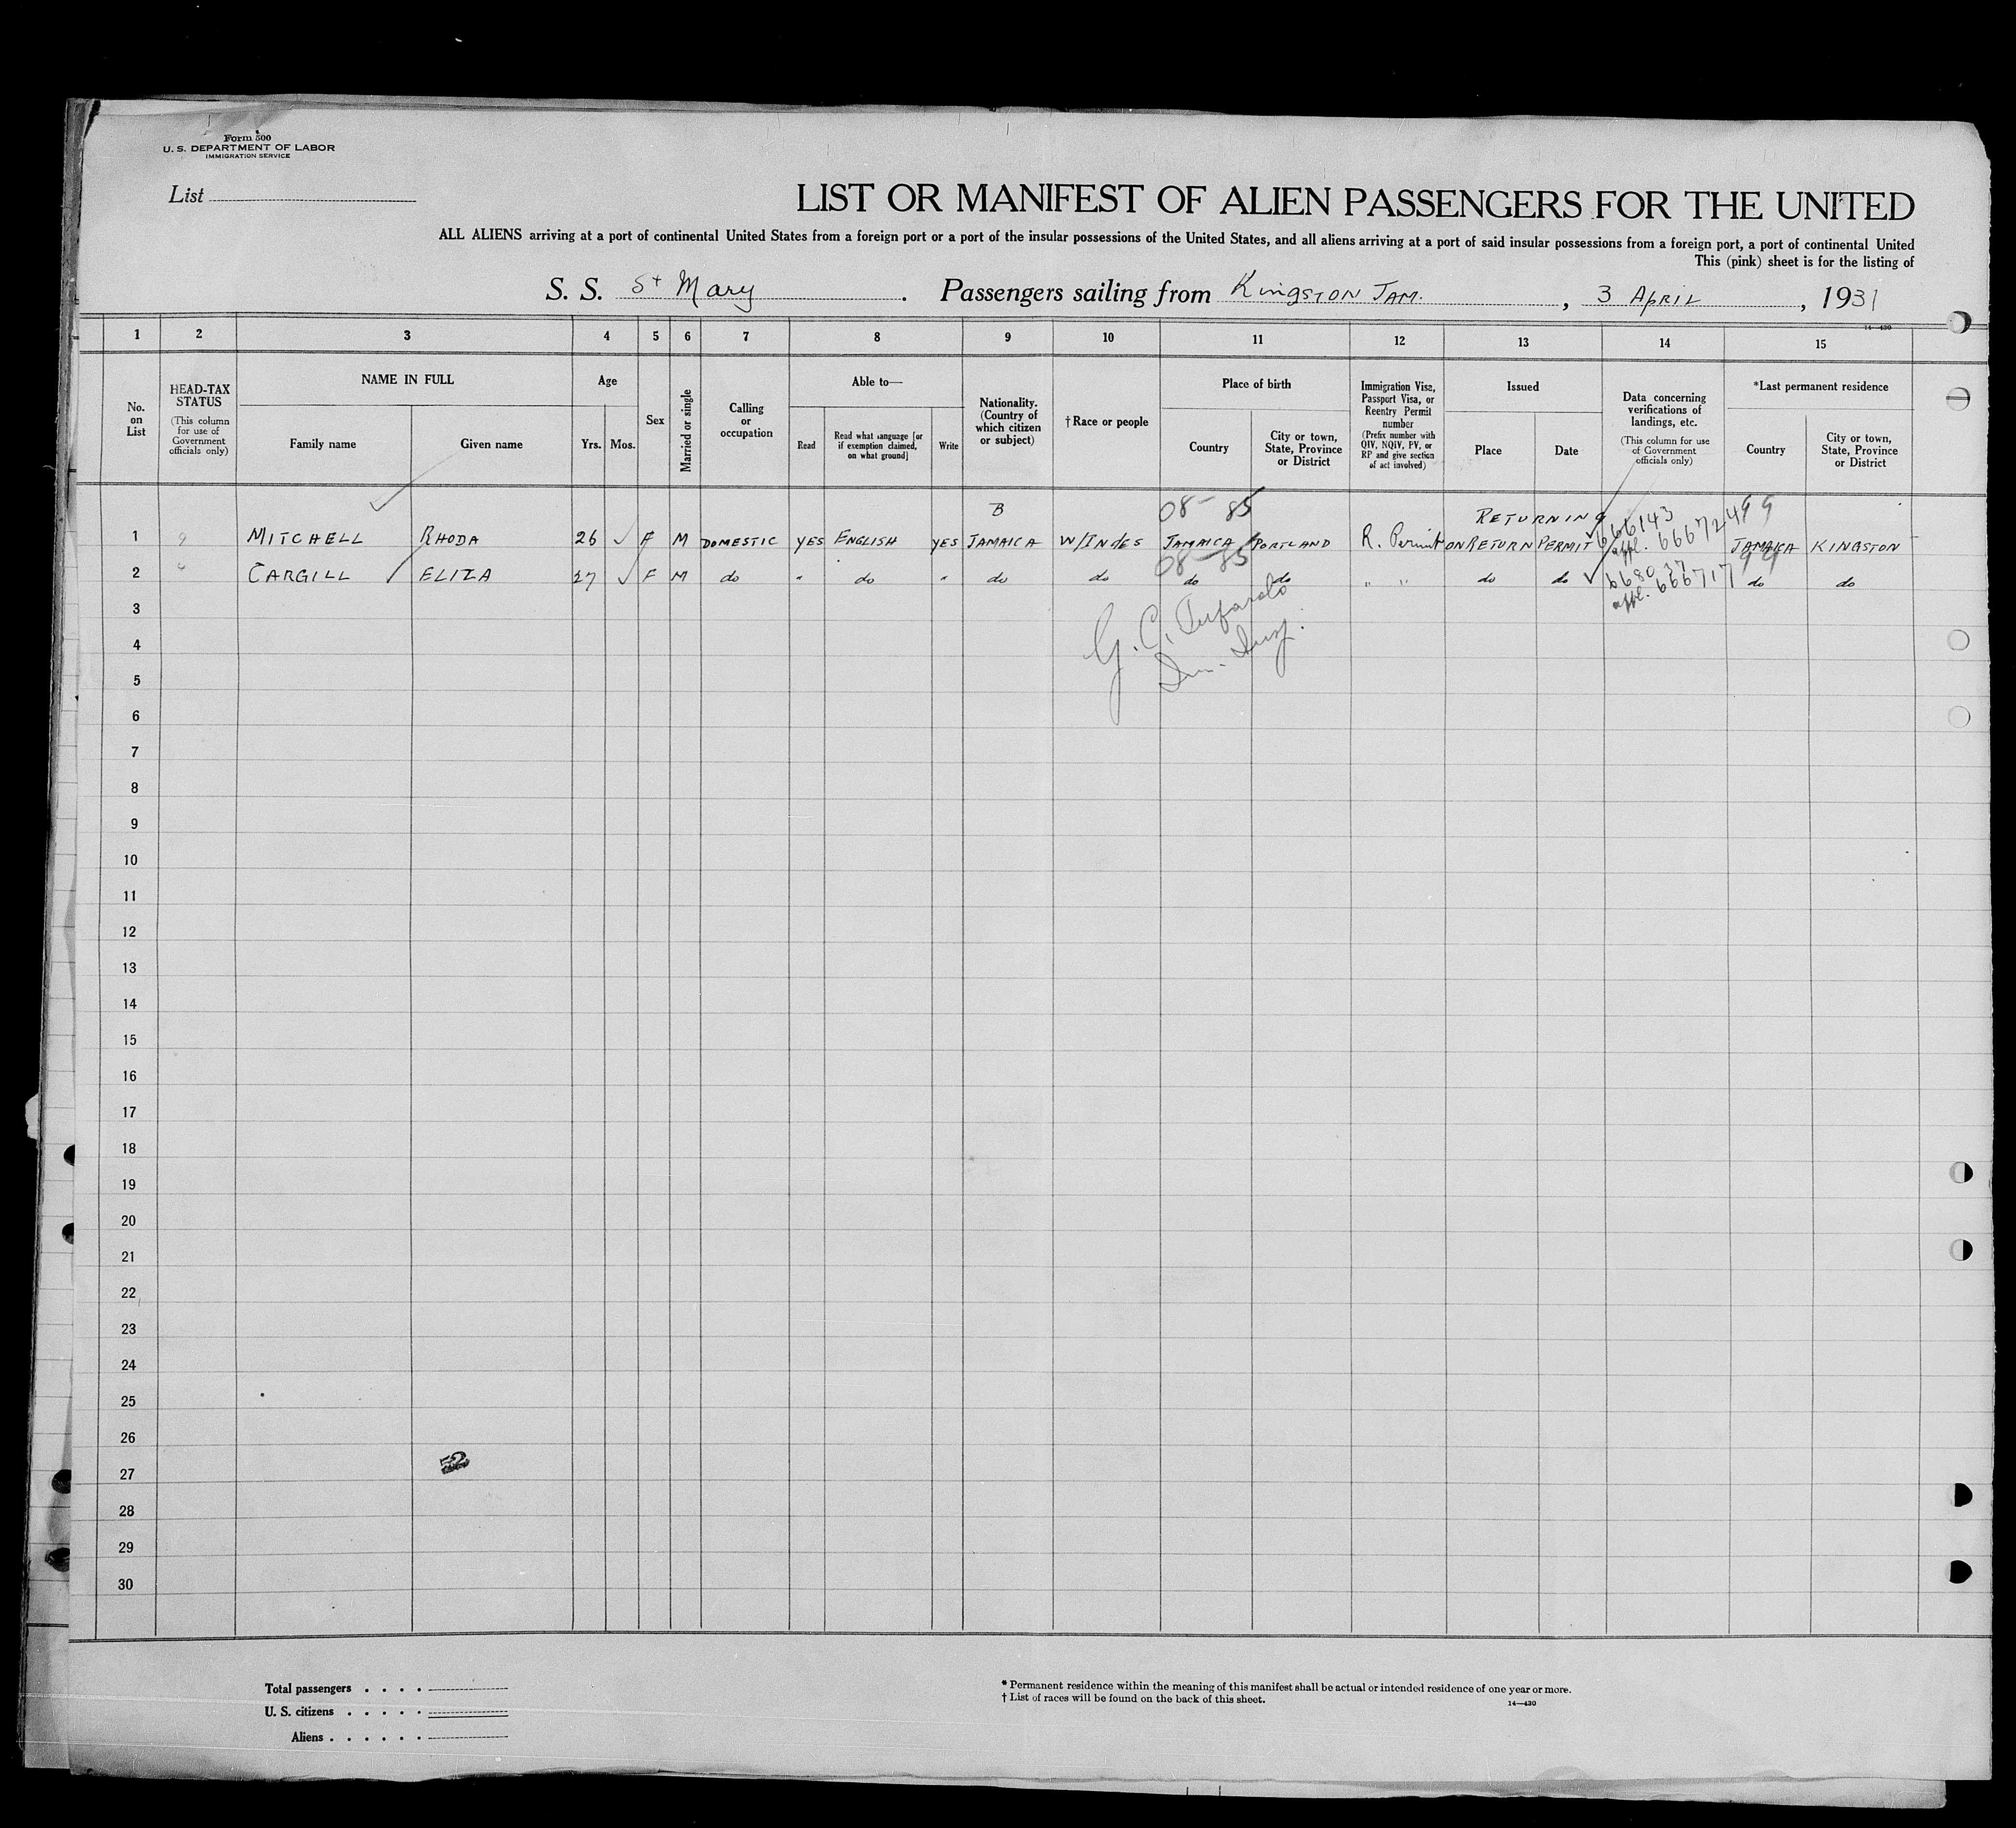 Form 500
U. S. DEPARTMENT OF LABOR
IMMIGRATION SERVICE
List
LIST OR MANIFEST OF ALIEN PASSENGERS FOR THE UNITED
ALL ALIENS arriving at a port of continental United States from a foreign port or a port of the insular possessions of the United States, and all aliens arriving at a port of said insular possessions from a foreign port, a port of continental United
This (pink) sheet is for the listing of
S. S. St Mary . Passengers sailing from KINGSTON JAM. , 3 APRIL , 1931
14—430
1 2 3 4 5 6 7 8 9 10 11 12 13 14 15
No. on List
HEAD-TAX STATUS
(This column for use of Government officials only)
NAME IN FULL
Family name Given name
Age
Yrs. Mos.
Sex
Married or single
Calling or occupation
Able to—
Read
Read what language [or if exemption claimed, on what ground]
Write
Nationality. (Country of which citizen or subject)
†Race or people
Place of birth
Country
City or town, State, Province or District
Immigration Visa, Passport Visa, or Reentry Permit number
(Prefix number with QIV, NQIV, PV, or RP and give section of act involved)
Issued
Place Date
Data concerning verifications of landings, etc.
(This column for use of Government officials only)
*Last permanent residence
Country
City or town, State, Province or District
B 08- 85 RETURNING 666143 99
1 MITCHELL RHODA 26 F M DOMESTIC YES ENGLISH YES JAMAICA W/INDES JAMAICA PORTLAND R. Permit ON RETURN PERMIT appl. 666724 JAMAICA KINGSTON
08- 85 668037 99
2 CARGILL ELIZA 27 F M do " do " do do do do " " do do appl. 666717 do do
3
G. C.
4
Im. Insp.
5
6
7
8
9
10
11
12
13
14
15
16
17
18
19
20
21
22
23
24
25
26
27 52
28
29
30
Total passengers . . . .
U. S. citizens . . . . .
Aliens . . . . . .
* Permanent residence within the meaning of this manifest shall be actual or intended residence of one year or more.
† List of races will be found on the back of this sheet.
14—430